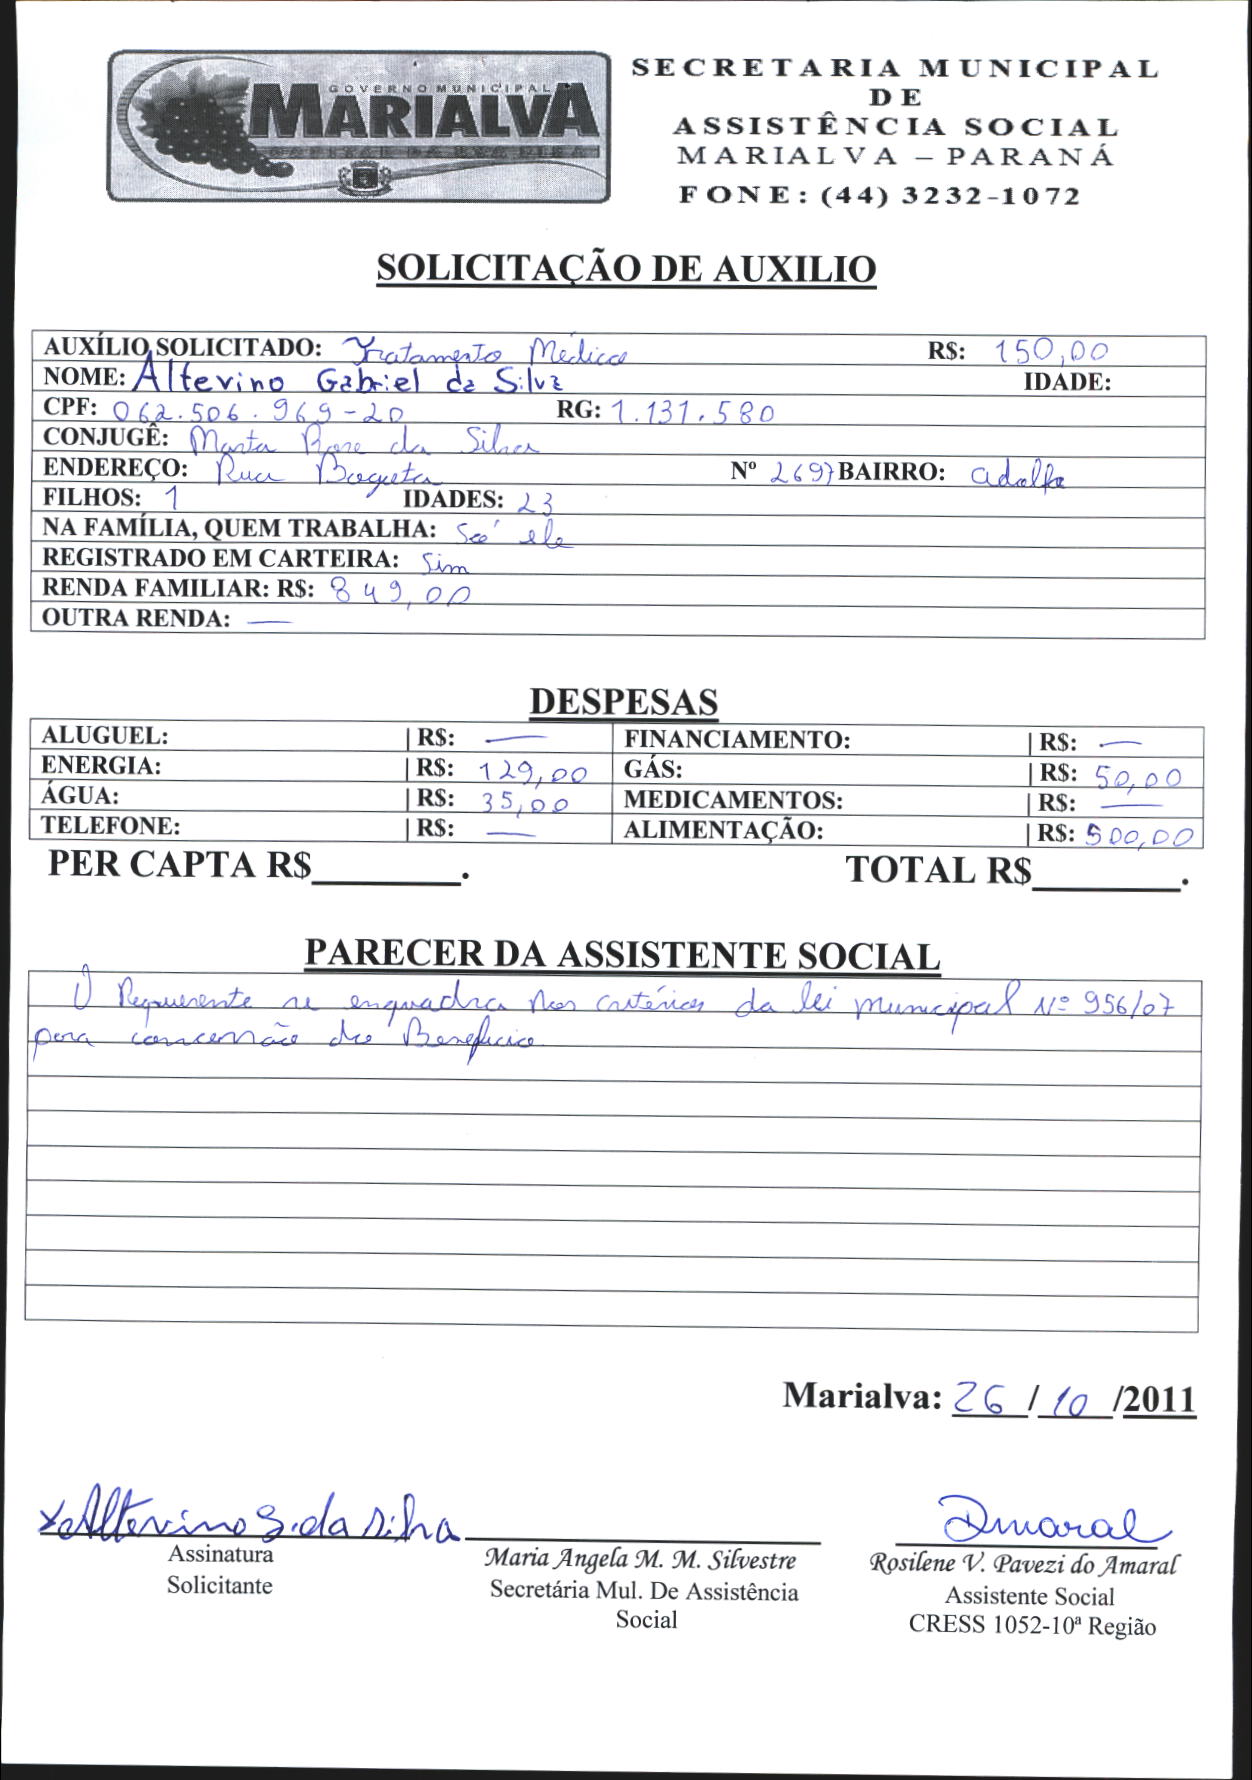 GOVERNO MUNICIPAL
MARIALVA
CAPITAL DA UVA FINA
SECRETARIA MUNICIPAL
DE
ASSISTÊNCIA SOCIAL
MARIALVA – PARANÁ
FONE: (44) 3232-1072
SOLICITAÇÃO DE AUXILIO
AUXÍLIO SOLICITADO: Tratamento Médico R$: 150,00
NOME: Altevino Gabriel da Silva IDADE:
CPF: 062.506.969-20 RG: 1.131.580
CONJUGÊ: Marta Rose da Silva
ENDEREÇO: Rua Bogota Nº 2697 BAIRRO: Adolfo
FILHOS: 1 IDADES: 23
NA FAMÍLIA, QUEM TRABALHA: Só ele
REGISTRADO EM CARTEIRA: Sim
RENDA FAMILIAR: R$: 849,00
OUTRA RENDA: —
DESPESAS
ALUGUEL: | R$: — FINANCIAMENTO: | R$: —
ENERGIA: | R$: 129,00 GÁS: | R$: 50,00
ÁGUA: | R$: 35,00 MEDICAMENTOS: | R$: —
TELEFONE: | R$: — ALIMENTAÇÃO: | R$: 500,00
PER CAPTA R$________. TOTAL R$________.
PARECER DA ASSISTENTE SOCIAL
O Requerente se enquadra nos critérios da lei municipal Nº 956/07
para concessão do Beneficio
Marialva: 26 / 10 /2011
x Altevino G. da Silva Dmaral
Assinatura Maria Angela M. M. Silvestre Rosilene V. Pavezi do Amaral
Solicitante Secretária Mul. De Assistência Assistente Social
Social CRESS 1052-10ª Região